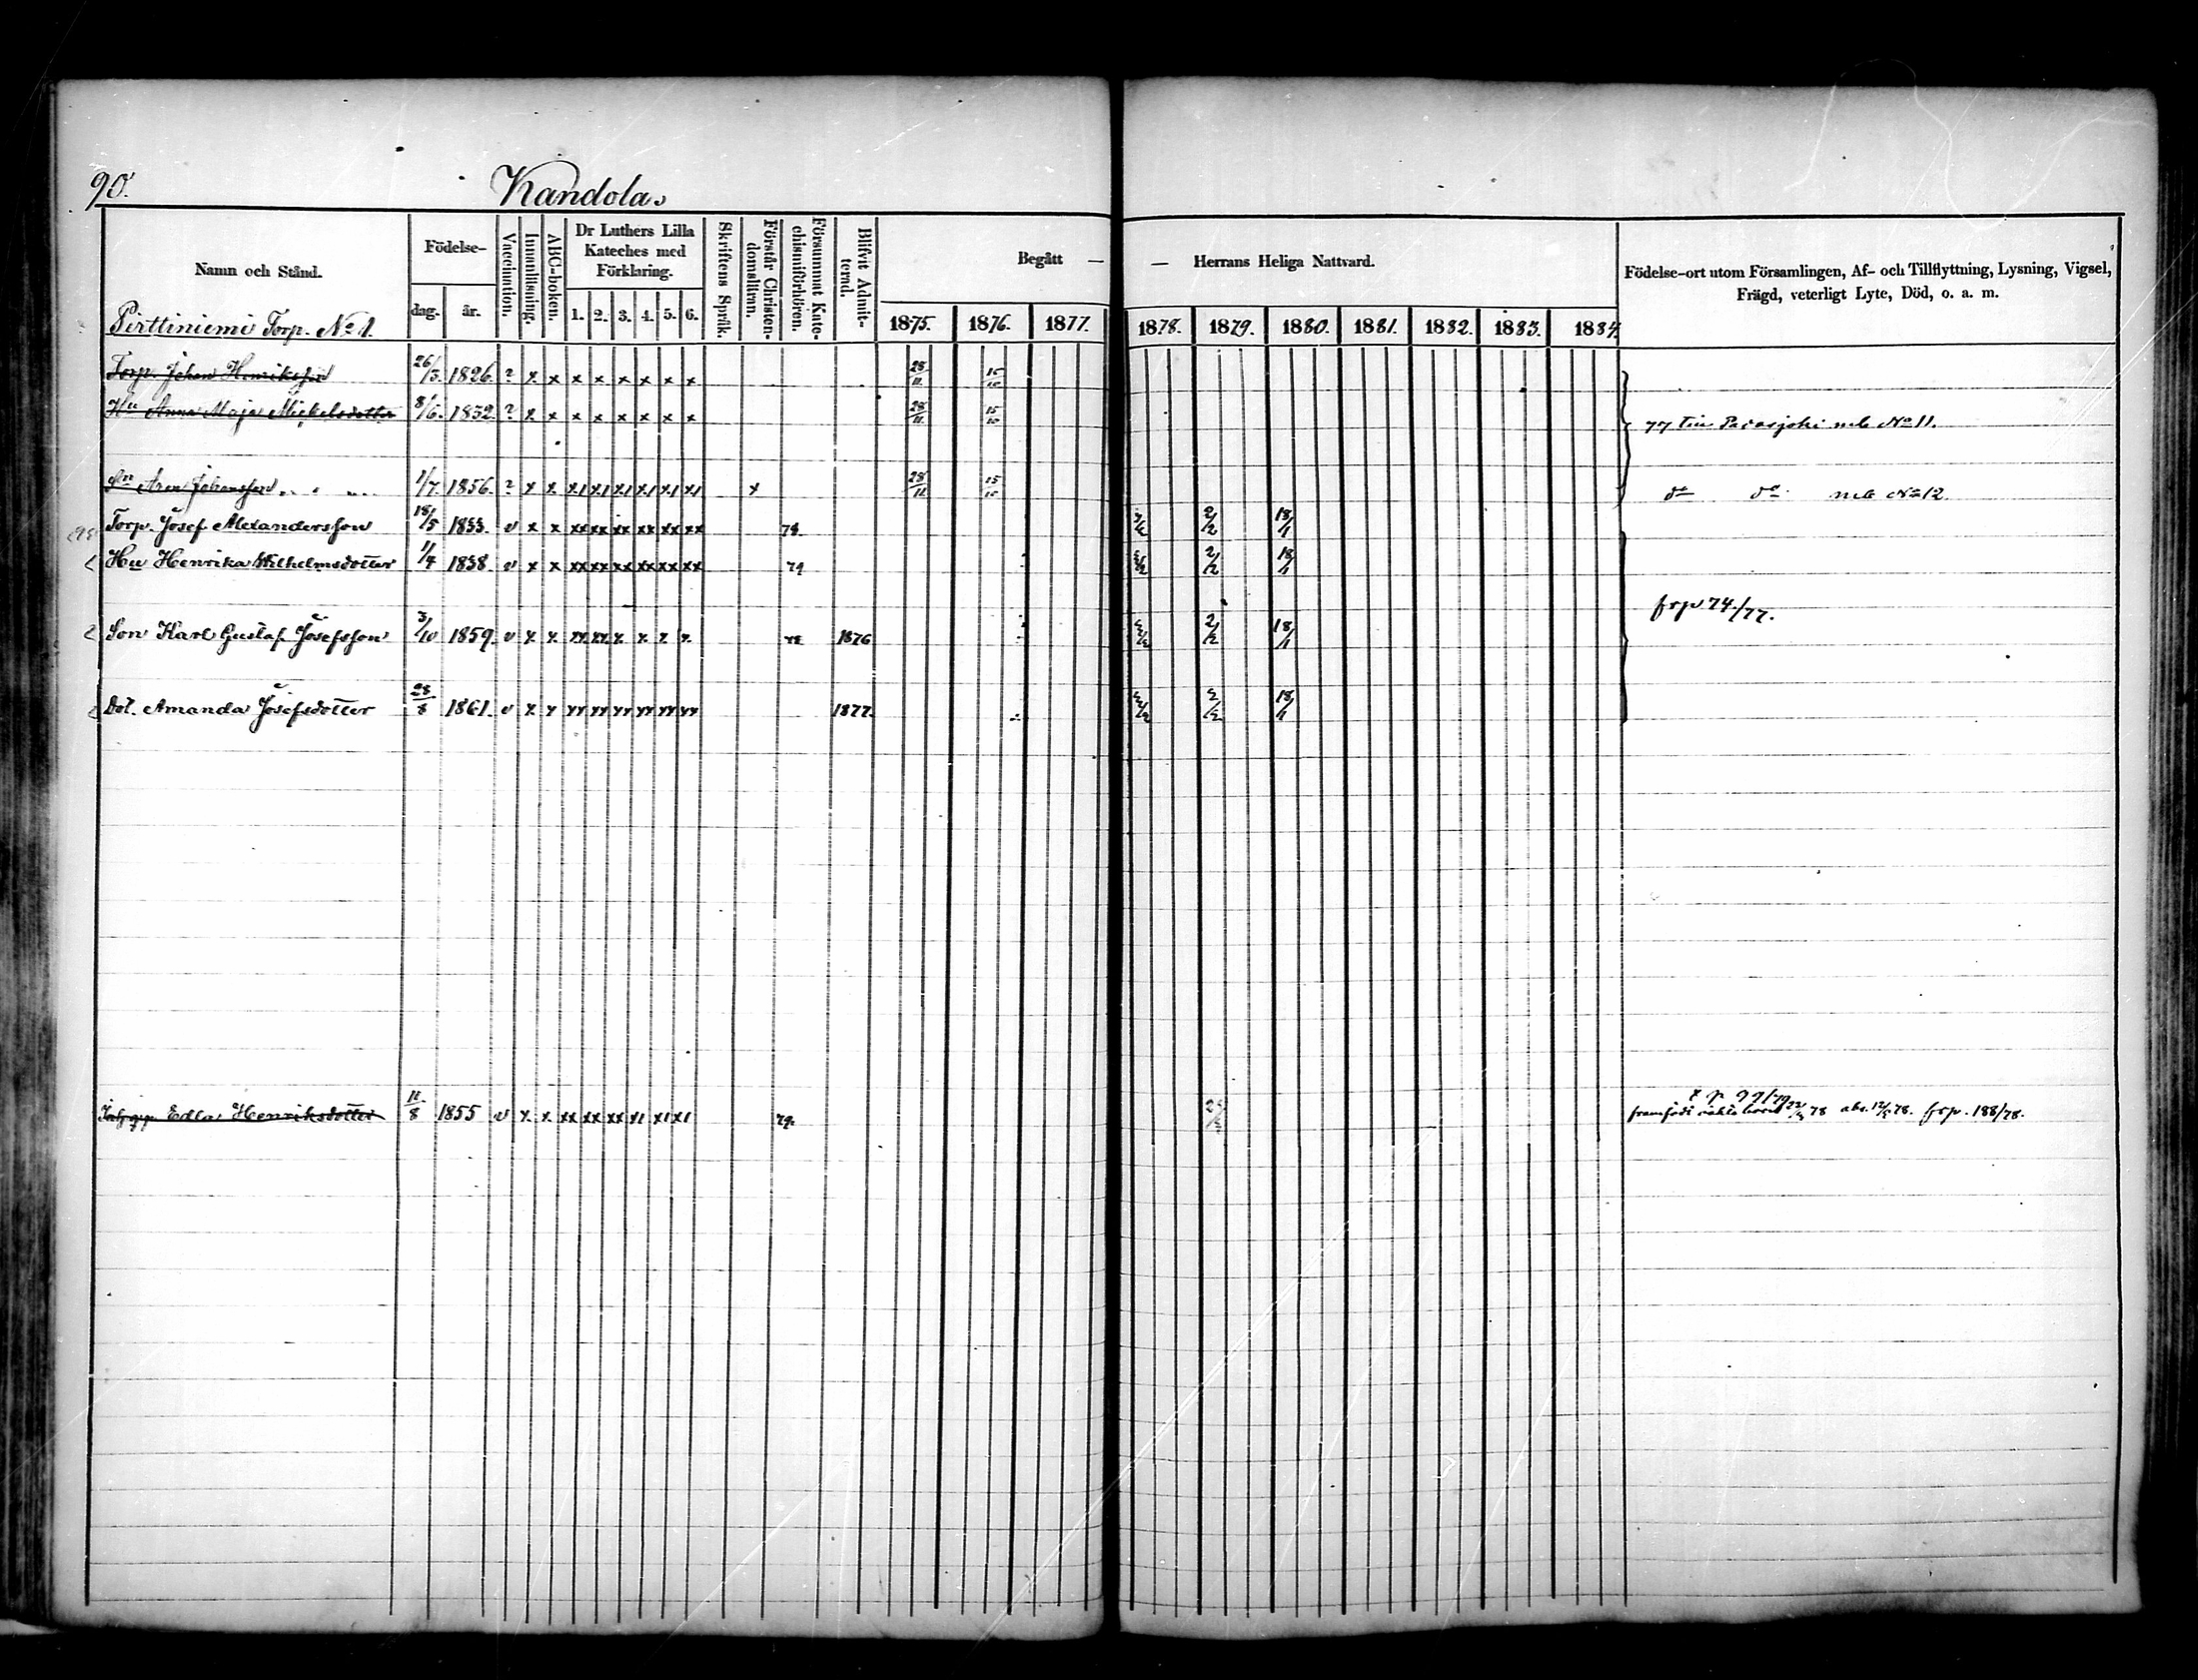 90.
Kandola.
Namn och Stånd.
Födelse-
dag.
år.
Vaccination.
Innanläsning.
ABC-boken.
Dr Luthers Lilla
Kateches med
Förklaring.
1. 2. 3. 4. 5. 6.
Skriftens Språk.
Förstår Christen-
domslären.
Försummat Kate-
chismiförhören.
Blifvit Admit-
terad.
Begått — — Herrans Heliga Nattvard.
1875. 1876. 1877. 1878. 1879. 1880. 1881. 1882. 1883. 1884.
Födelse-ort utom Församlingen, Af- och Tillflyttning, Lysning, Vigsel,
Frägd, veterligt Lyte, Död, o. a. m.
Pirttiniemi Torp. No 1.
Torp. Johan Henriksson 26/3. 1826. ? x x x x x x x x 28/11. 15/10
Hu Anna Maja Mickelsdotter 8/6. 1832. ? x x x x x x x x 28/11. 15/10
77 till No 11.
Johansson 1/7. 1856. ? x x x1 x1 x1 x1 x1 x1 x 28/11 15/10
do do No 12.
Torp. Josef Alexandersson 18/5 1833. v x x xx xx xx xx xx xx 79. 2/2 18/1
Hu Henrika Wilhelmsdotter 1/4 1838. v x x xx xx xx xx xx xx 79 2/2 18/1
frp 74/77.
Son Karl Gustaf Josefsson 3/10 1859. v x x xx xx x x x x 1876 2/2 18/1
Dot. Amanda Josefsdotter 28/8 1861. v x x xx xx xx xx xx xx 1877. 2/2 18/1
Edla Henriksdotter 11/8 1855 v x x xx xx xx x1 x1 x1 79.
t p 99/79
78 abs. 78. frp. 188/78.